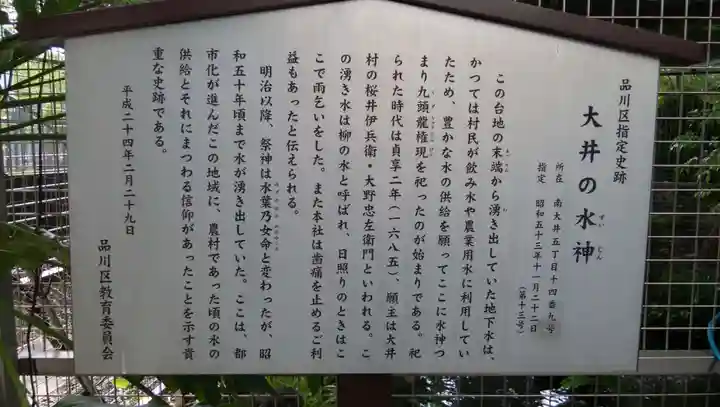 品川区指定史跡
大井の水神
すいじん
所在　南大井五丁目十四番九号
指定　昭和五十三年十一月二十二日
（第十三号）
この台地の末端から湧き出していた地下水は、
かつては村民が飲み水や農業用水に利用してい
たため、豊かな水の供給を願ってここに水神つ
まり九頭龍権現を祀ったのが始まりである。祀
られた時代は貞享二年（一六八五）、願主は大井
村の桜井伊兵衛・大野忠左衛門といわれる。こ
の湧き水は柳の水と呼ばれ、日照りのときはこ
こで雨乞いをした。また本社は歯痛を止めるご利
益もあったと伝えられる。
明治以降、祭神は水葉乃女命と変わったが、昭
和五十年頃まで水が湧き出していた。ここは、都
市化が進んだこの地域に、農村であった頃の水の
供給とそれにまつわる信仰があったことを示す貴
重な史跡である。
平成二十四年二月二十九日
品川区教育委員会